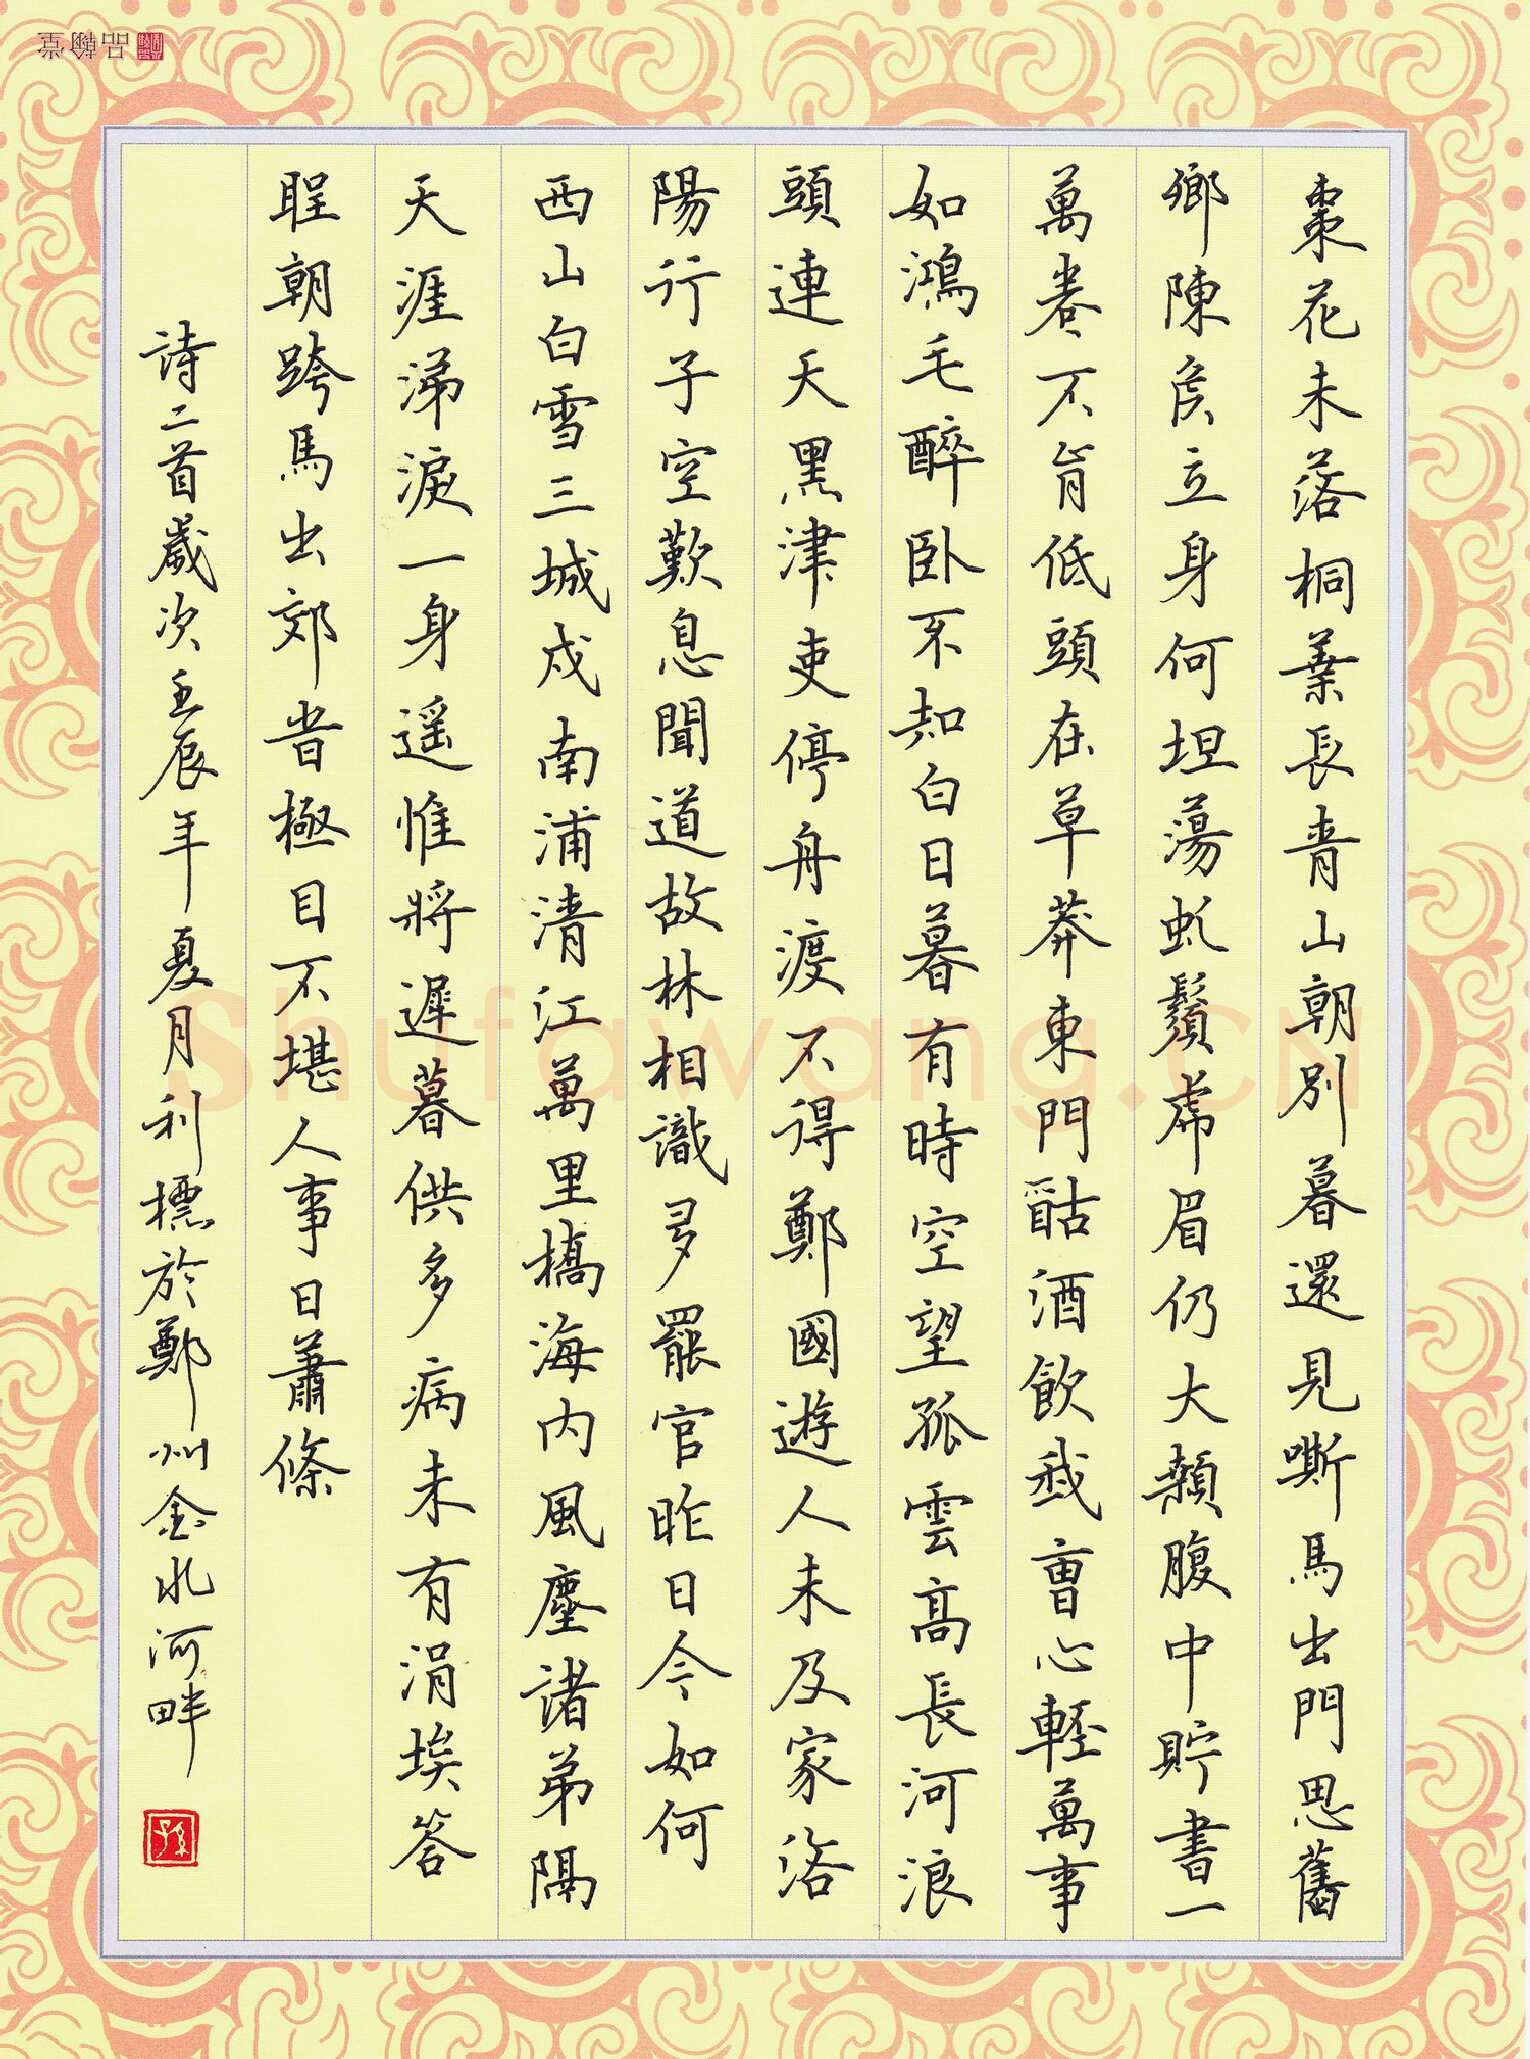 棗花未落桐葉長青山朝別暮還見嘶馬出門思舊
鄉陳侯立身何坦蕩虬鬚虎眉仍大顙腹中貯書一
萬卷不肯低頭在草莽東門酤酒飲我曹心輕萬事
如鴻毛醉卧不知白日暮有時空望孤雲高長河浪
頭連天黑津吏停舟渡不得鄭國遊人未及家洛
陽行子空歎息聞道故林相識多罷官昨日今如何
西山白雪三城戍南浦清江萬里橋海内風塵諸弟隔
天涯涕淚一身遥惟將遲暮供多病未有涓埃答
聖朝跨馬出郊旹極目不堪人事日蕭條
詩二首歲次壬辰年夏月利標於鄭州金水河畔
品翰堂
Shufawang.cn